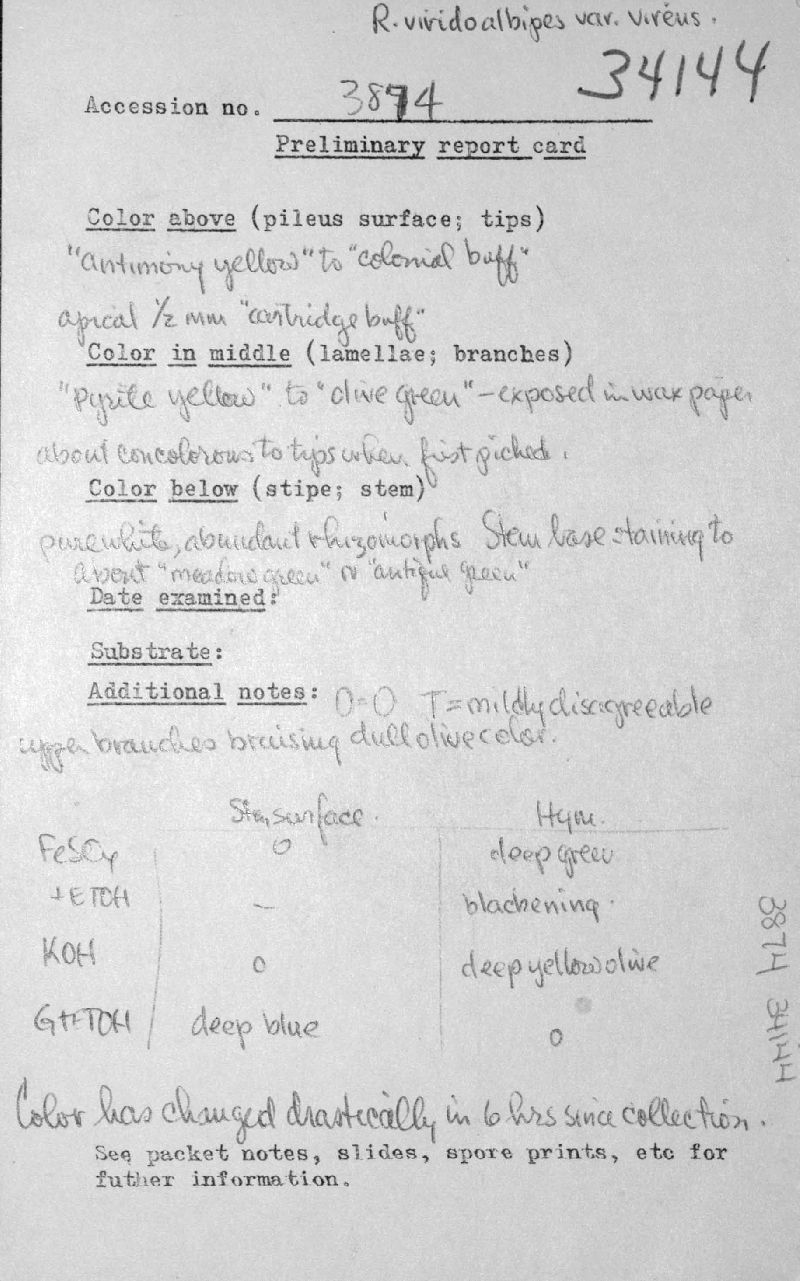 R. viridoalbipes var. virens.
34144
Accession no. 3874
Preliminary report card
Color above (pileus surface; tips)
"antimony yellow" to "colonial buff"
apical 1/2 mm "cartridge buff"
Color in middle (lamellae; branches)
"pyrite yellow" to "olive green" - exposed in wax paper
about concolorous to tips when first picked.
Color below (stipe; stem)
pure white, abundant rhizomorphs Stem base staining to
about "meadow green" or "antique green"
Date examined:
Substrate:
Additional notes: O=O T=mildly disagreeable
upper branches bruising dull olive color.
Stem surface. Hym.
FeSO4 0 deep green
+ETOH — blackening.
KOH 0 deep yellow olive
G+ETOH deep blue 0
3874 34144
Color has changed drastically in 6 hrs since collection.
See packet notes, slides, spore prints, etc for
futher information.